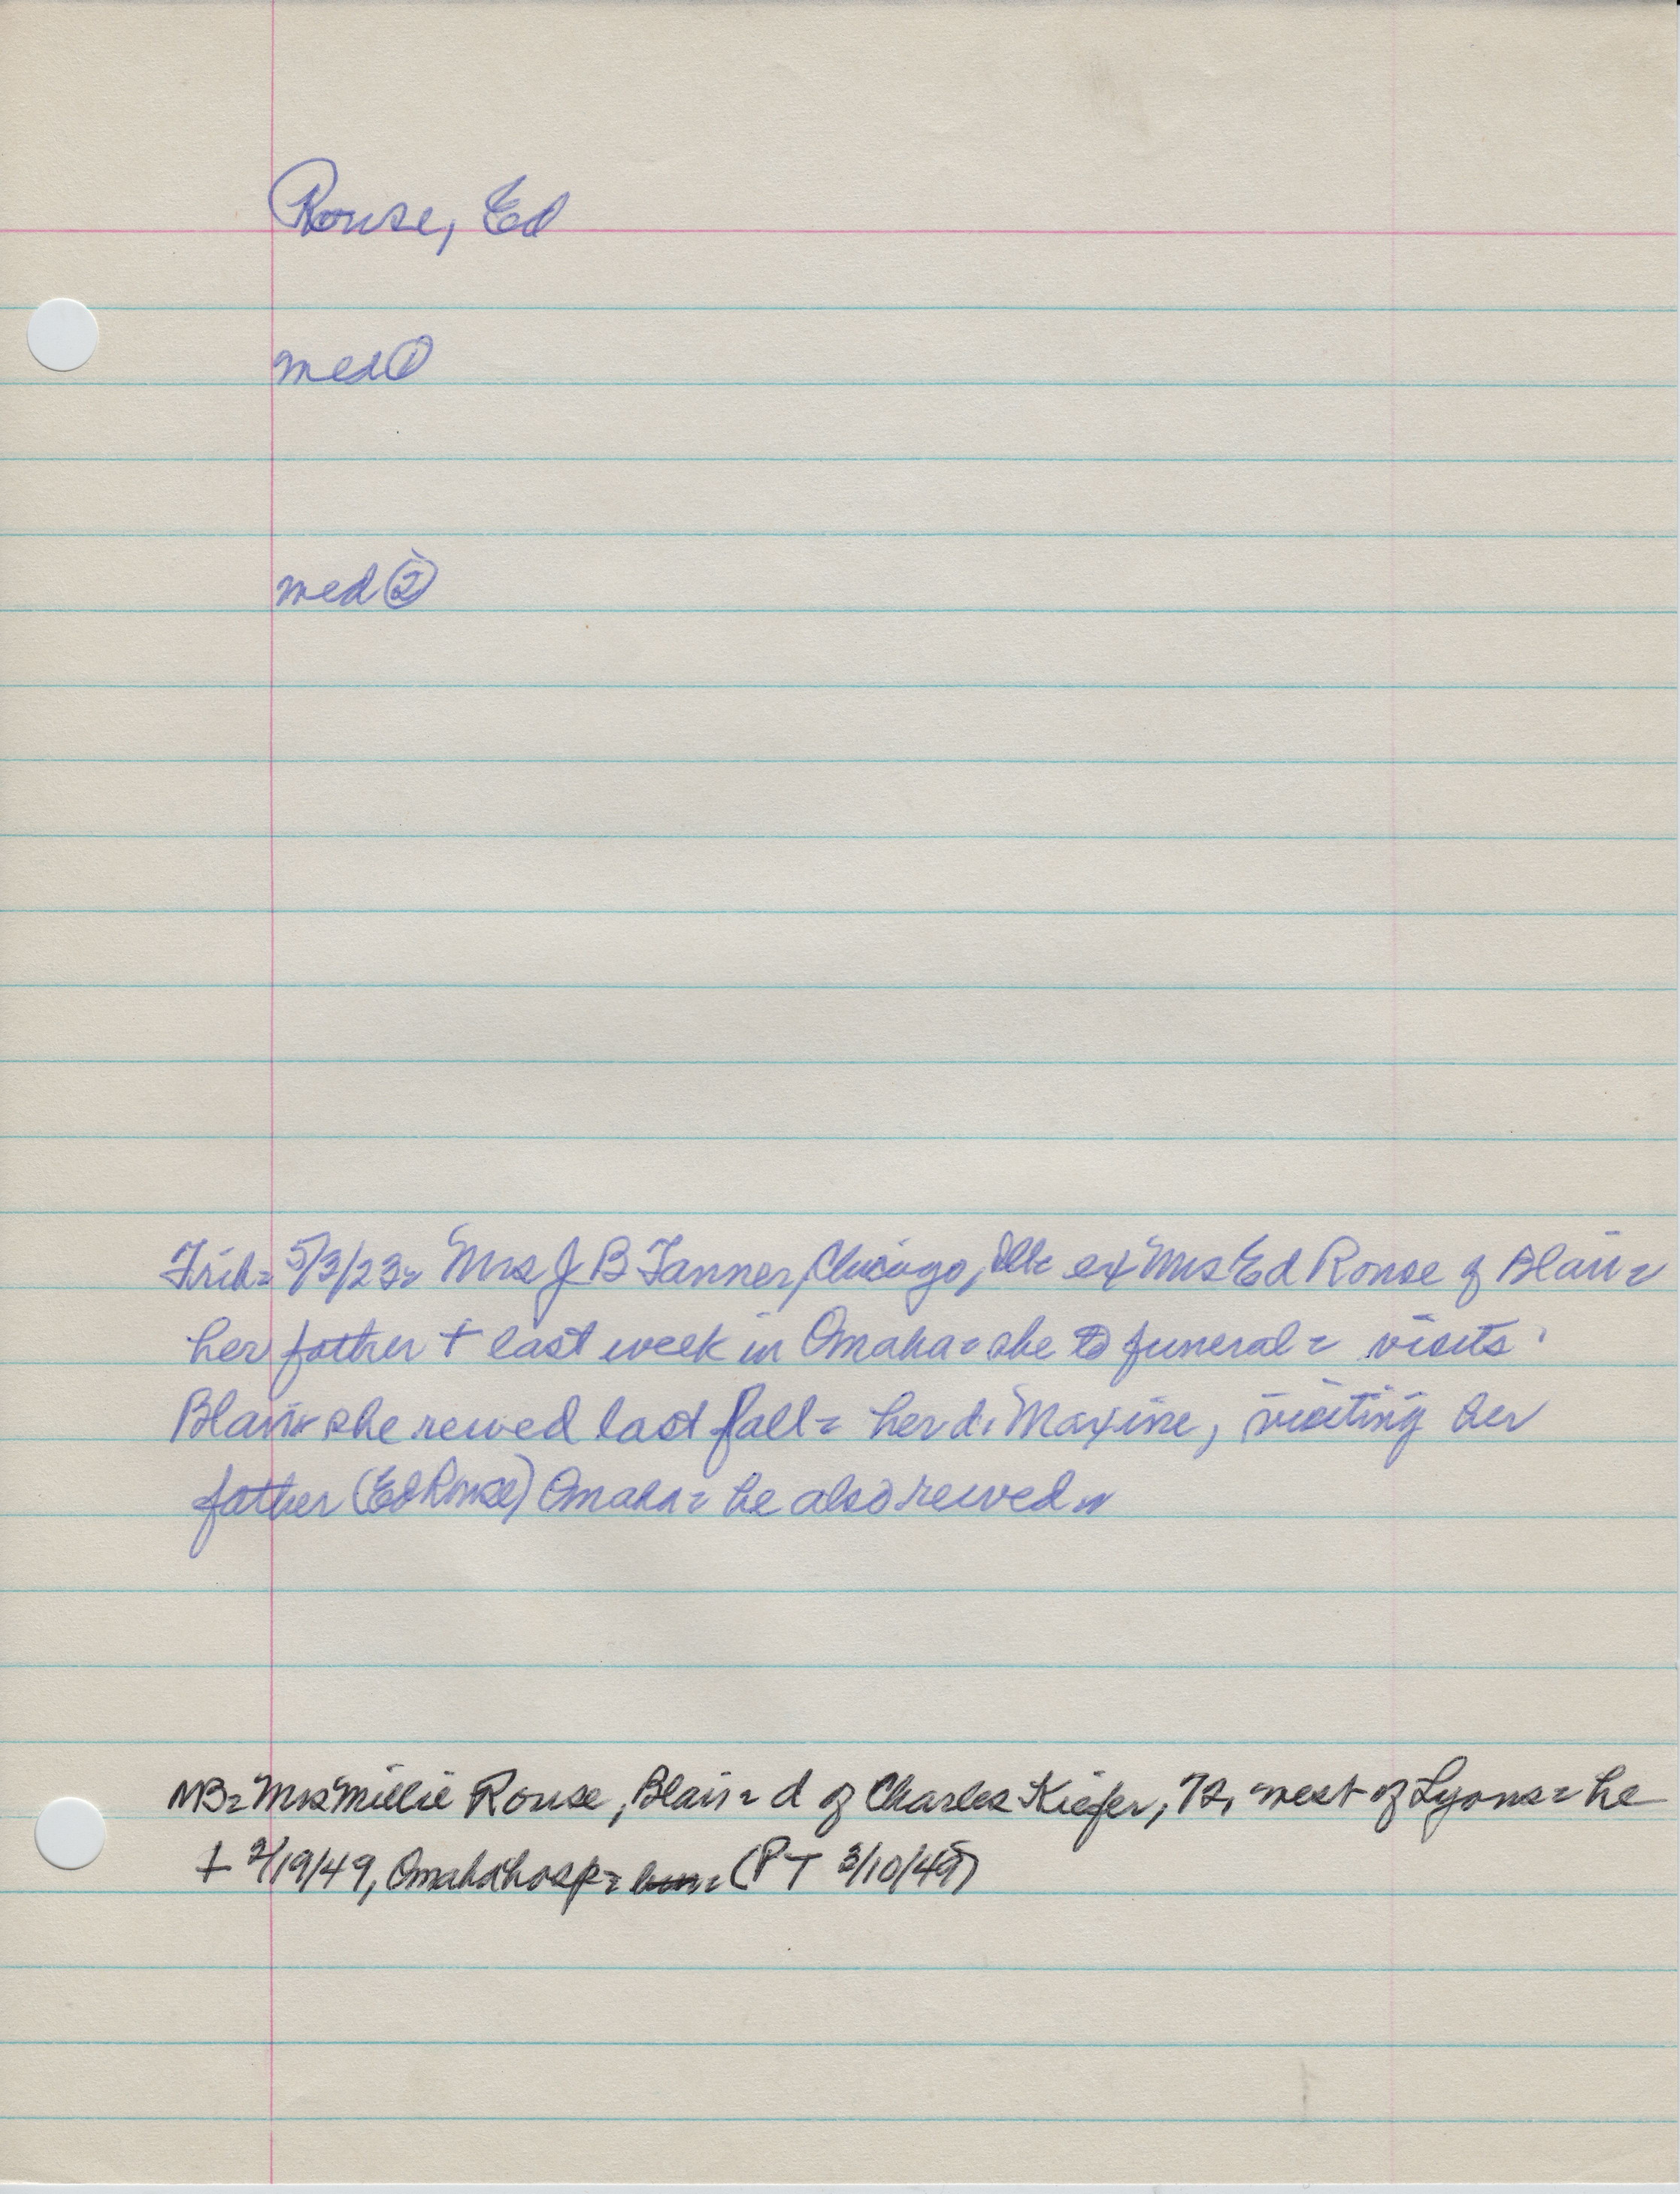 Rouse, Ed
med ①
med ②
Trib= 5/3/23= Mrs J B Tanner, Chicago, Ill= ex Mrs Ed Rouse of Blair=
her father † last week in Omaha= she to funeral= visits
Blair= she rewed last fall= her d. Maxine, visiting her
father (Ed Rouse) Omaha= he also rewed
NB= Mrs Millie Rouse, Blair= d of Charles Kiefer, 72, west of Lyons= he
† 2/19/49, Omaha hosp= (PT 3/10/49)